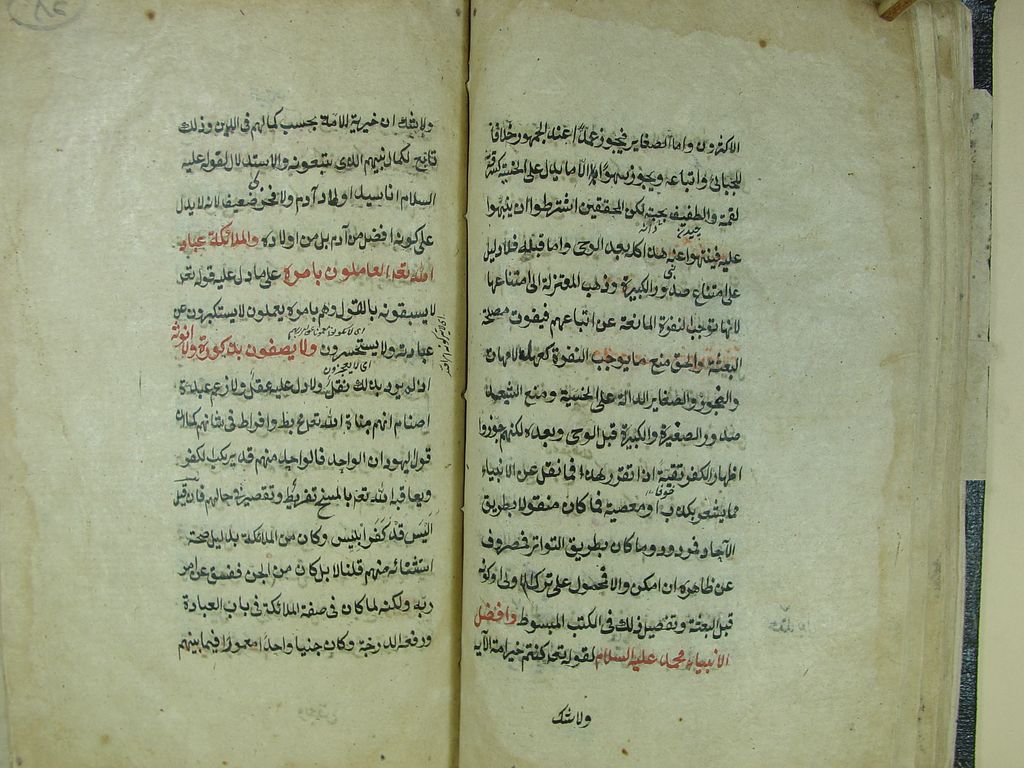 الاكثرون واما الصغاير فيجوز عمدا عند الجمهور خلافا
للجبائي واتباعه ويجوز سهوا الا ما يدل على الخسة كسرقة
لقمة والتطفيف بحبة لكن المحققين اشترطوا ان ينبهوا
عليه فينتهوا عنه هذا كله بعد الوحى واما قبله فلا دليل
على امتناع صدور الكبيرة وذهب المعتزلة الى امتناعها
لانها توجب النفرة المانعة عن اتباعهم فيفوت مصلحة
البعثة والحق منع ما يوجب النفرة كعهر الامهات
والفجور والصغاير الدالة على الخسية ومنع الشيعة
صدور الصغيرة والكبيرة قبل الوحى وبعده لكنهم جوزوا
اظهار الكفر تقية اذا تقرر هذا فما نقل عن الانبياء
مما يشعر بكذب او معصية فما كان منقولا بطريق
الآحاد فمردود وما كان بطريق التواتر فمصروف
عن ظاهره ان امكن والا فمحمول على ترك الاولى او كونه
قبل البعثة وتفصيل ذلك فى الكتب المبسوط وافضل
الانبياء محمد عليه السلام لقوله تع كنتم خير امة الآية
ولا شك
ولا شك ان خيرية الامة بحسب كمالهم فى الدين وذلك
تابع لكمال نبيهم الذى يتبعونه والاستدلال لقوله عليه
السلام انا سيد اولاد آدم ولا فخر لى ضعيف لانه لا يدل
على كونه افضل من آدم بل من اولاده والملائكة عباد
الله تعه العاملون بامره على ما دل عليه قوله تعه
لا يسبقونه بالقول وهم بامره يعملون لا يستكبرون عن
عبادته ولا يستحسرون ولا يصفون بذكورة ولا انوثة
اى لا يعجزون
اذ لم يرد بذلك نقل ولا دل عليه عقل ولا زعم عبدة
اصنام انهم بنات الله تعه مح بط وافراط فى شانهم كما ان
قول اليهود ان الواحد فالواحد منهم قد يرتكب الكفر
ويعاقبه الله تعه بالمسخ تفريط وتقصير فى حالهم فان قيل
اليس قد كفر ابليس وكان من الملائكة بدليل صحة
استثنائه منهم قلنا لا بل كان من الجن ففسق عن امر
ربه ولكنه لما كان فى صفة الملائكة فى باب العبادة
ورفعة الدرجة وكان جنيا واحدا معمورا فيما بينهم